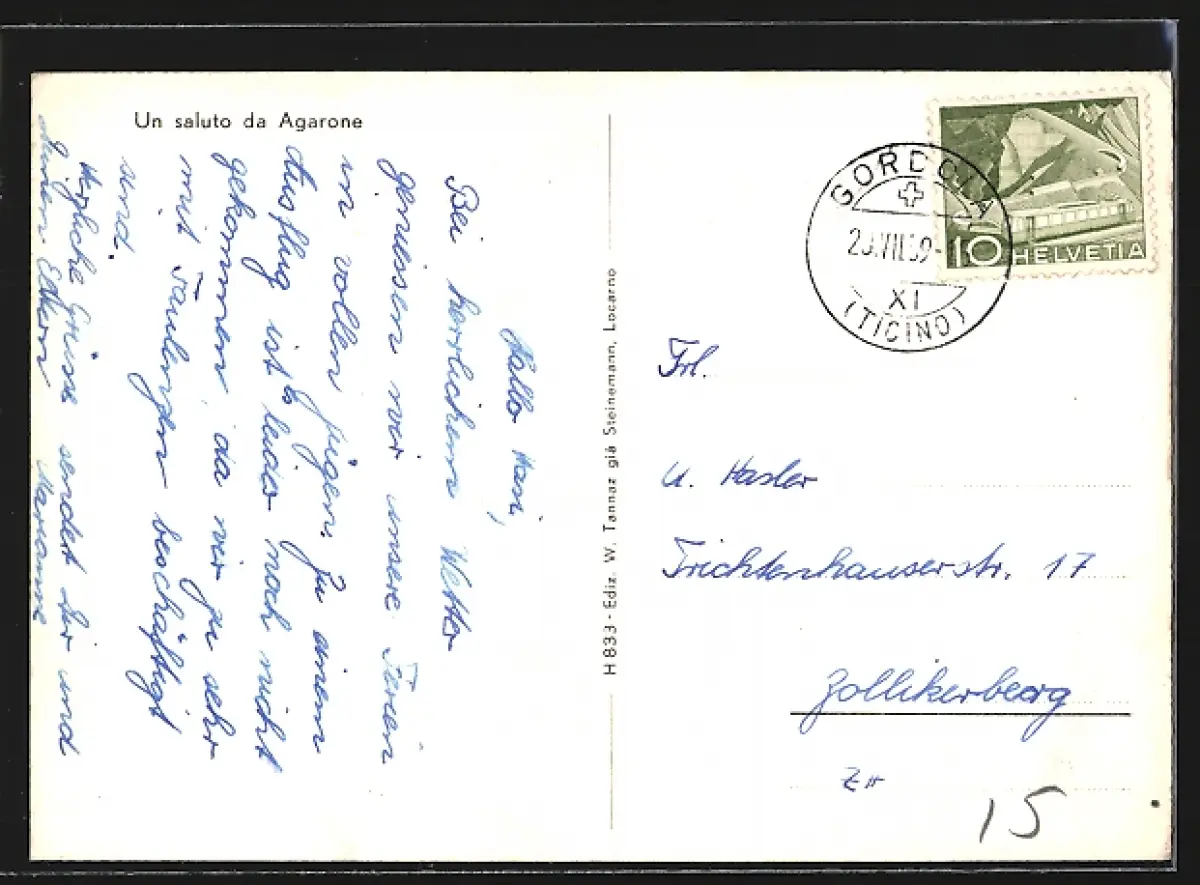 Un saluto da Agarone
Hallo Hasi,
Bei herrlichem Wetter
geniessen wir unsere Ferien
in vollen Zügen. Zu einem
Ausflug ist's leider noch nicht
gekommen da wir zu sehr
mit Faulenzen beschäftigt
sind.
Herzliche Grüsse sendet Dir und
Deinen Eltern Marianne
H 833 - Ediz. W. Tannaz già Steinemann, Locarno
GORDOLA
XI
(TICINO)
10 HELVETIA
Frl.
U. Hasler
Trichtenhauserstr. 17
Zollikerberg
ZH
15